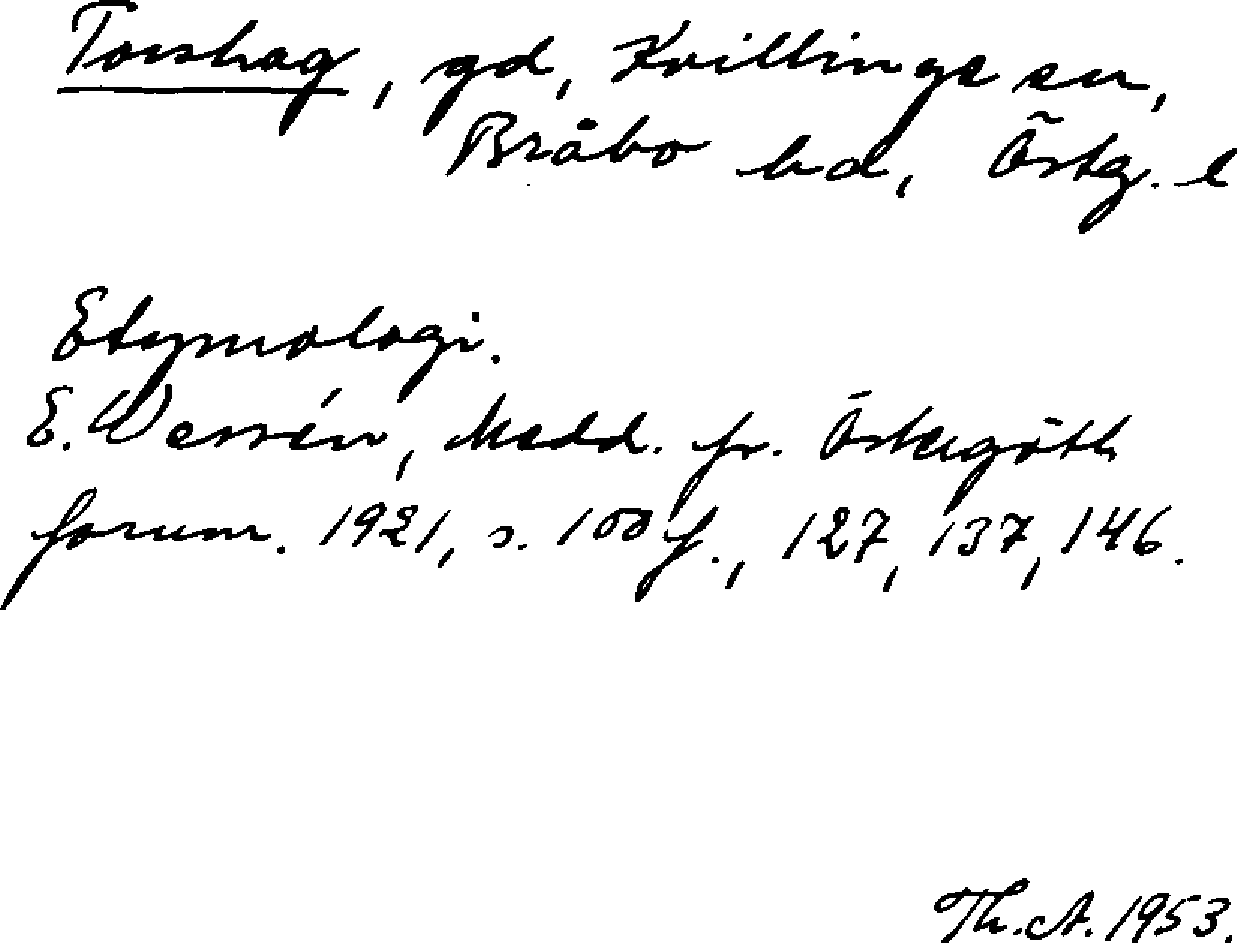 Torshag, gd, Kvillinge sn,
Bråbo hd, Östg. l
Etymologi.
E. Wessén, Medd. fr. Östergöth
fornm. 1921, s. 100 f., 127, 137, 146.
Th. A. 1953.